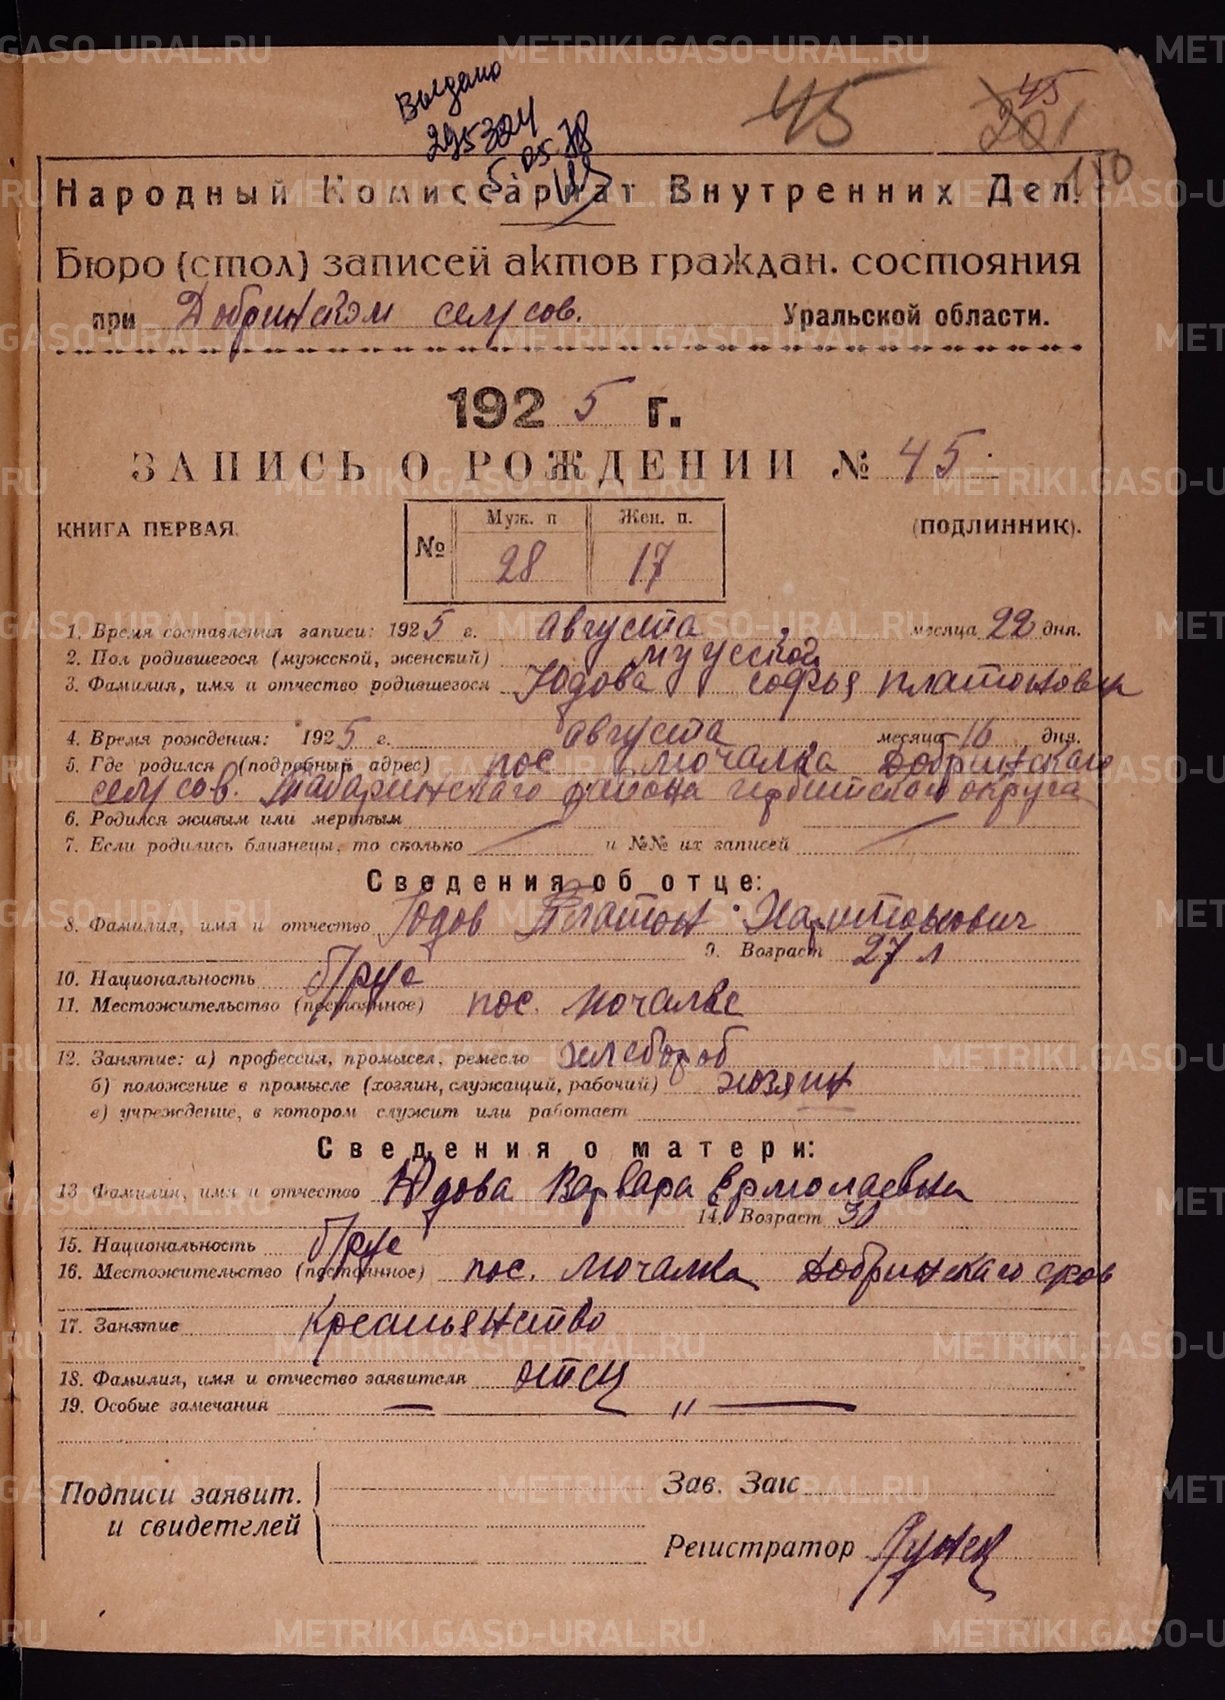 Выдано
295304
5 05 78
45
45
201
110
Народный Комиссариат Внутренних Дел.
Бюро (стол) записей актов граждан. состояния
при Добринском сельсов. Уральской области.
1925 г.
ЗАПИСЬ О РОЖДЕНИИ № 45.
КНИГА ПЕРВАЯ. (ПОДЛИННИК).
№ Муж. п Жен. п.
28 17
1. Время составления записи: 1925 г. августа месяца 22 дня.
2. Пол родившегося (мужской, женский) мужской
3. Фамилия, имя и отчество родившегося Юдова софья платоновна
4. Время рождения: 1925 г. августа месяца 16 дня.
5. Где родился (подробный адрес) пос мочалка Добринскаго
сельсов. Табаринскаго района ирбитскаго округа
6. Родился живым или мертвым —
7. Если родились близнецы, то сколько — и №№ их записей —
Сведения об отце:
8. Фамилия, имя и отчество Юдов Платон Харитонович
9. Возраст 27 л
10. Национальность б/рус
11. Местожительство (постоянное) пос. мочалке
12. Занятие: а) профессия, промысел, ремесло хлебороб
б) положение в промысле (хозяин, служащий, рабочий) хозяин
в) учреждение, в котором служит или работает
Сведения о матери:
13 Фамилия, имя и отчество Юдова Варвара Ермолаевна
14. Возраст 30
15. Национальность б/рус
16. Местожительство (постоянное) пос. мочалка Добринскаго
17. Занятие Крестьянство
18. Фамилия, имя и отчество заявителя отец
19. Особые замечания — " —
Подписи заявит. и свидетелей
Зав. Загс
Регистратор
METRIKI.GASO-URAL.RU